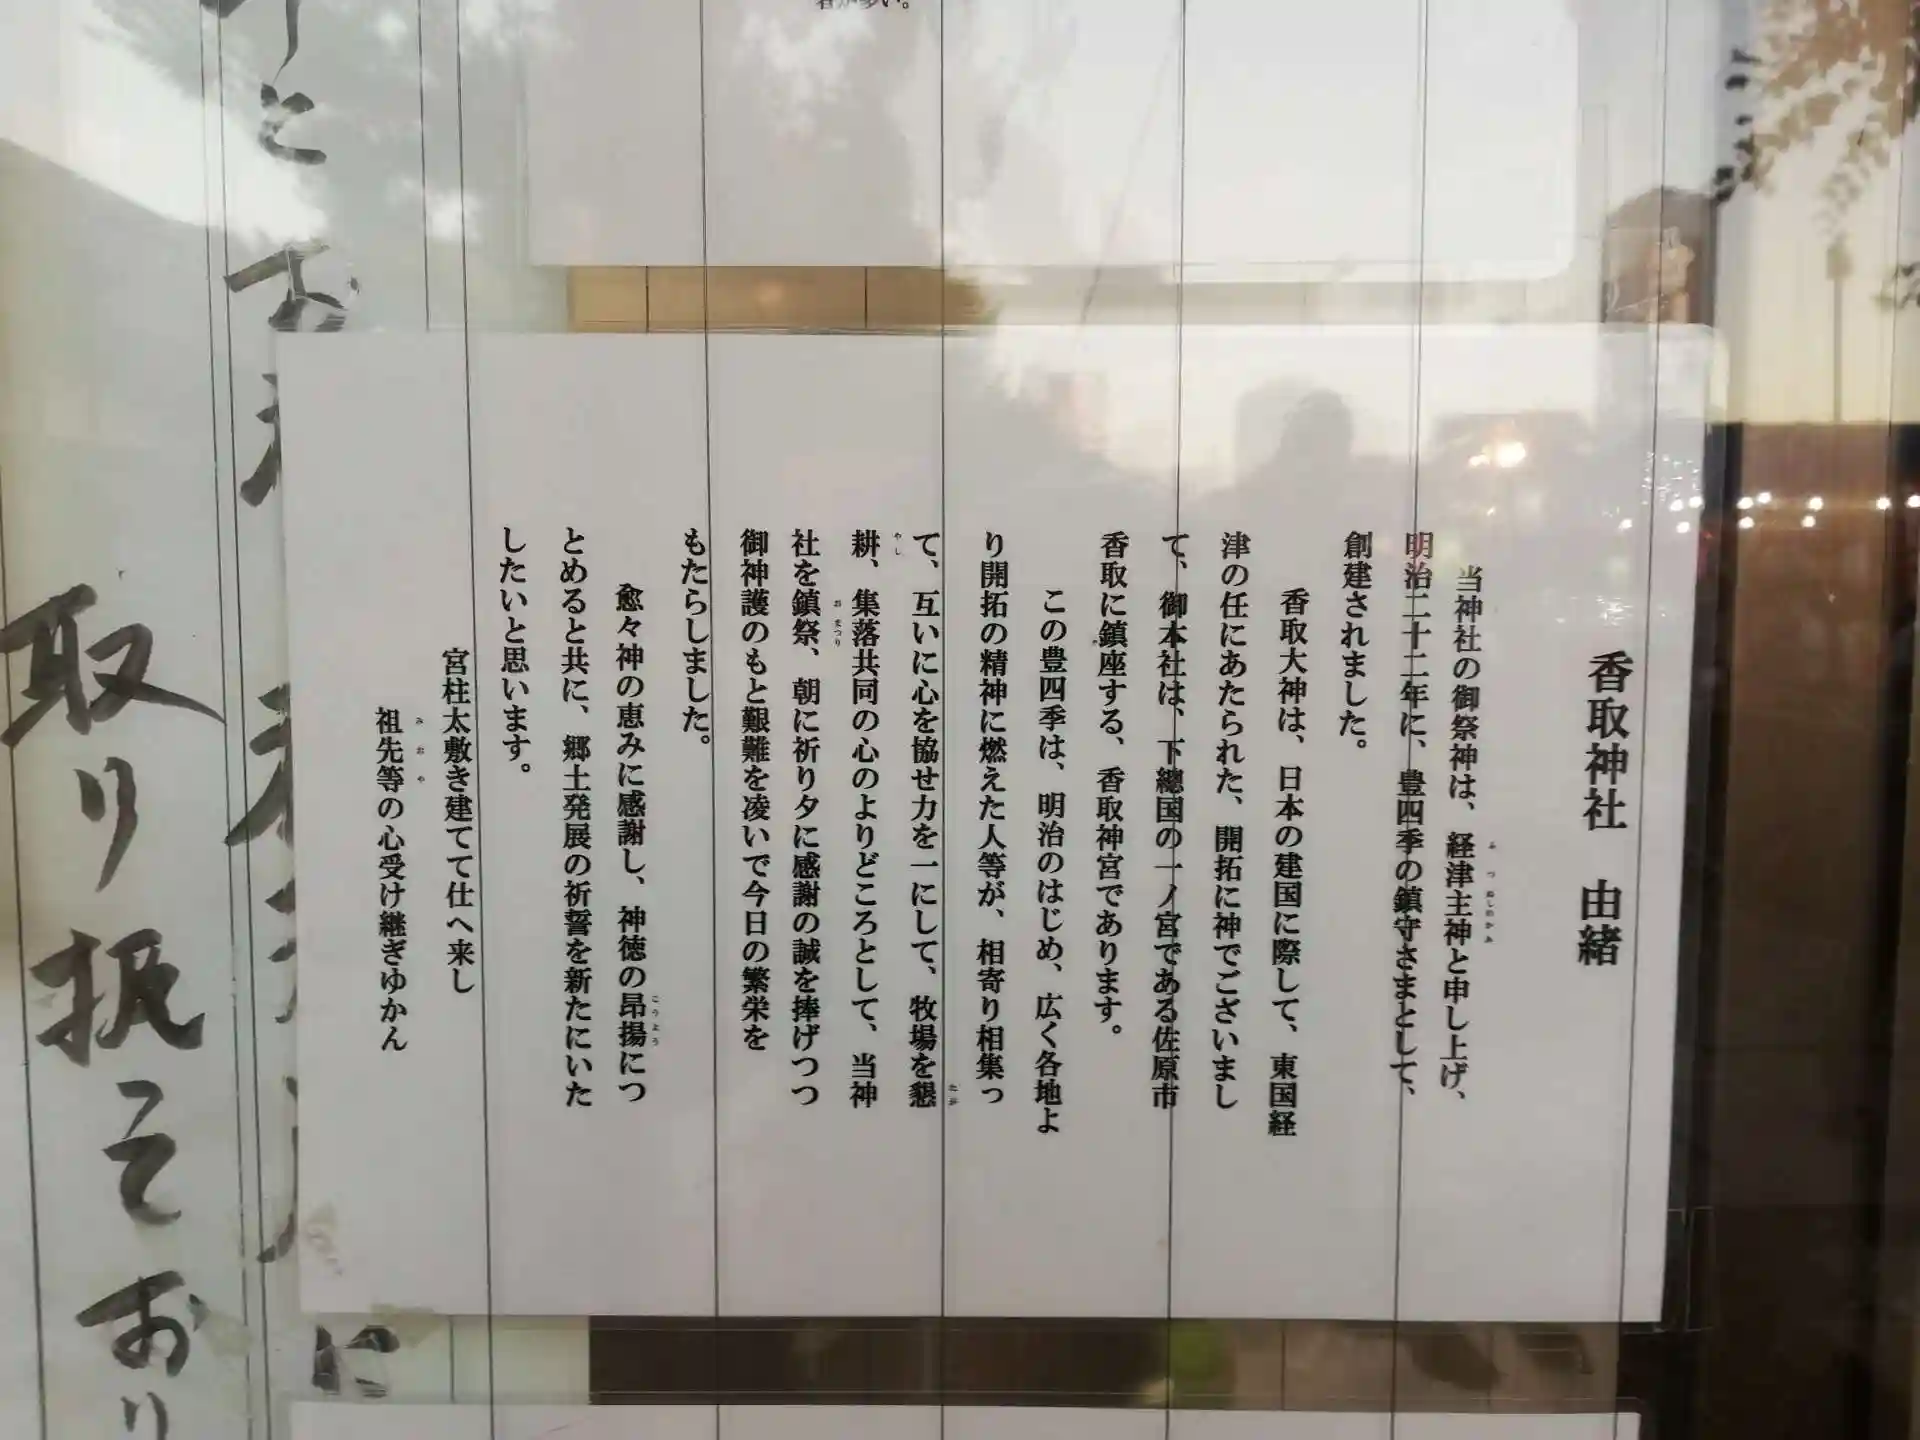 香取神社　由緒
当神社の御祭神は、経津主神と申し上げ、
明治二十二年に、豊四季の鎮守さまとして、
創建されました。
香取大神は、日本の建国に際して、東国経
津の任にあたられた、開拓に神でございまし
て、御本社は、下總国の一ノ宮である佐原市
香取に鎮座する、香取神宮であります。
この豊四季は、明治のはじめ、広く各地よ
り開拓の精神に燃えた人等が、相寄り相集っ
て、互いに心を協せ力を一にして、牧場を懇
耕、集落共同の心のよりどころとして、当神
社を鎮祭、朝に祈り夕に感謝の誠を捧げつつ
御神護のもと艱難を凌いで今日の繁栄を
もたらしました。
愈々神の恵みに感謝し、神徳の昂揚につ
とめると共に、郷土発展の祈誓を新たにいた
したいと思います。
宮柱太敷き建てて仕へ来し
祖先等の心受け継ぎゆかん
に
取り扱
お
り